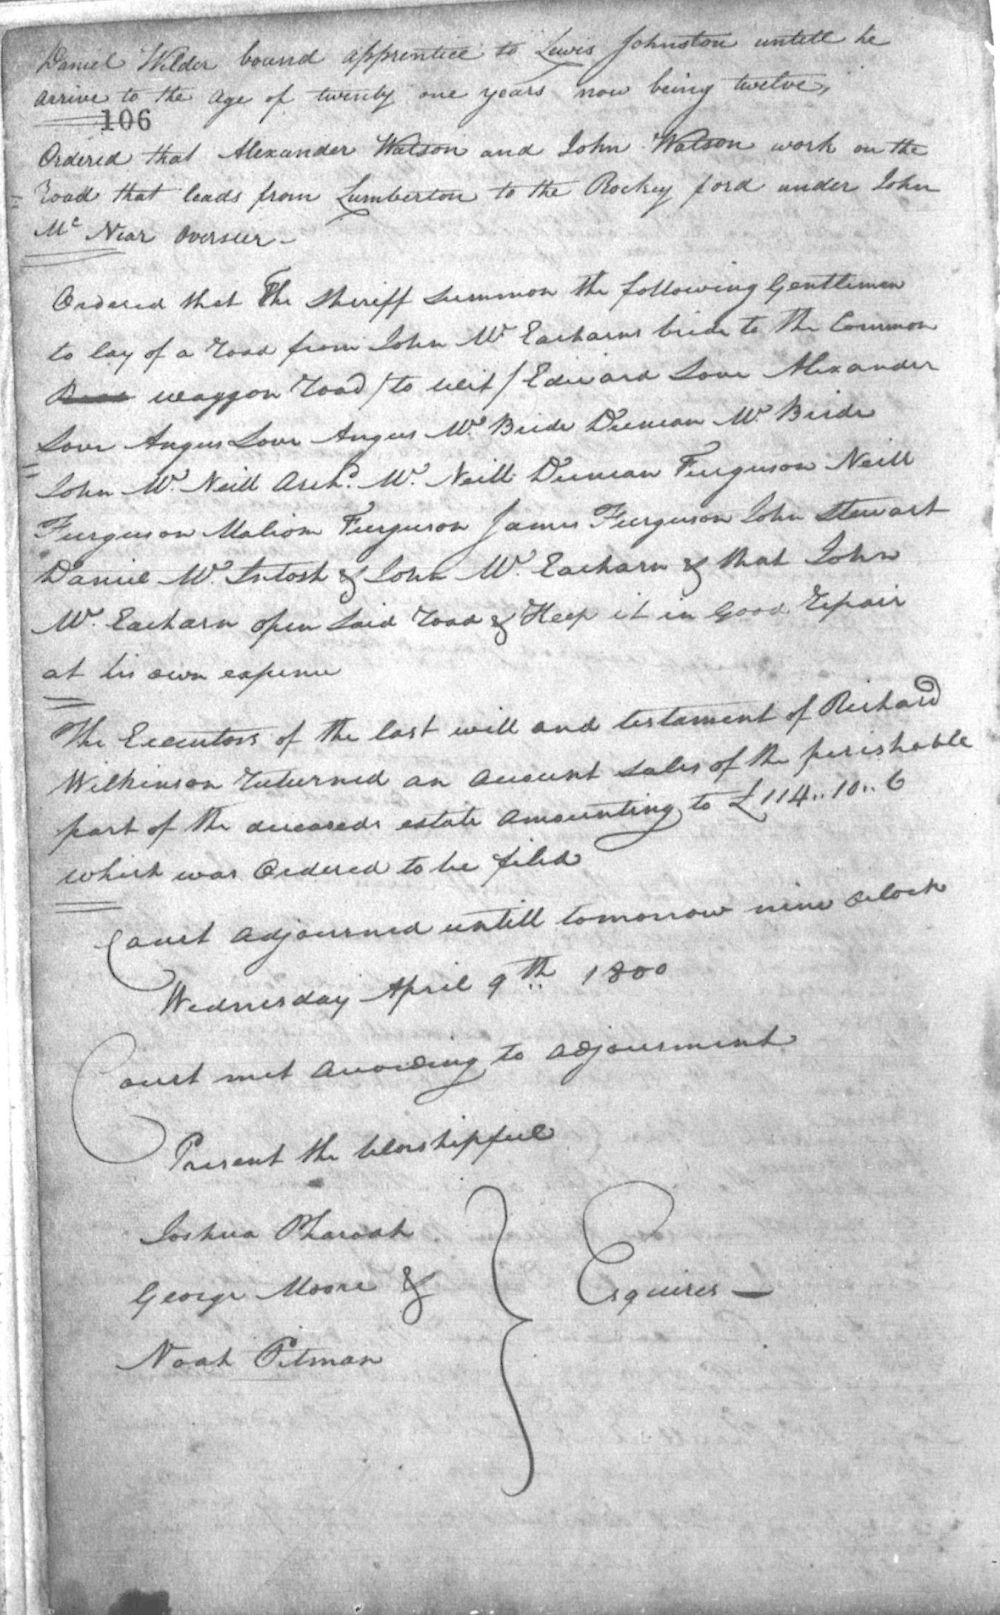 Daniel Wilder bound apprentice to Lewis Johnston untill he
arrive to the age of twenty one years now being twelve,
106
Ordered that Alexander Watson and John Watson work on the
road that leads from Lumberton to the Rockey ford under John
Mc Near overseer
Ordered that The Sheriff summon the following Gentlemen
to lay of a road from John Mc Eacharns to the Common
waggon road / to wit / Edward Love Alexander
Love Angus Love Angus Mc Bride Duncan Mc Bride
John Mc Neill Archd. Mc Neill Duncan Furguson Neill
Furguson Malcom Furguson James Furguson John Stewart
Daniel Mc Intosh & John Mc Eacharn & that John
Mc Eacharn open said road & Keep it in Good repair
at his own expence
The Executors of the last will and testament of Richard
Wilkinson returned an account sales of the perishable
part of the deceaseds estate amounting to £114..10..6
which was Ordered to be filed
Court adjourned untill tomorrow nine oclock
Wednesday April 9th 1800
Court met according to adjourment
Present the Worshipfull
Joshua Pharoah
George Moore &
Esquires
Noah Pitman